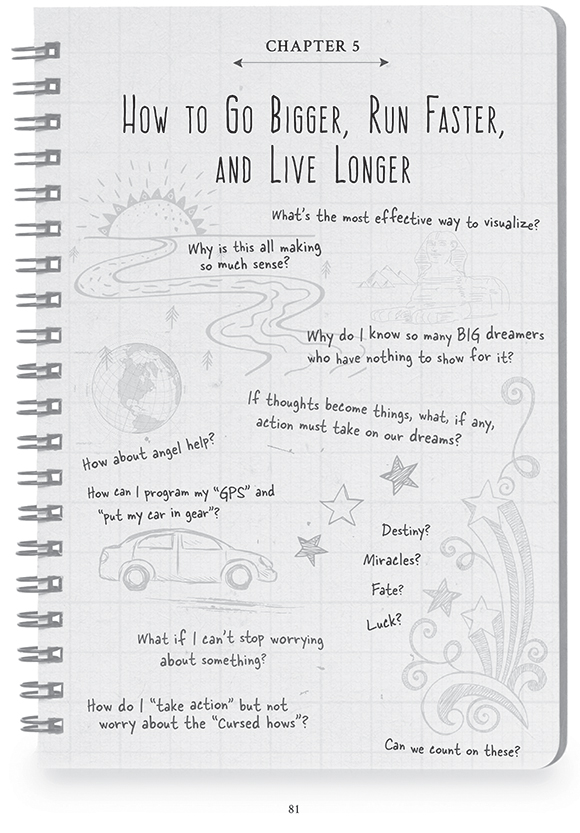 CHAPTER 5
How to Go Bigger, Run Faster,
and Live Longer
What's the most effective way to visualize?
Why is this all making
so much sense?
Why do I know so many BIG dreamers
who have nothing to show for it?
If thoughts become things, what, if any,
action must take on our dreams?
How about angel help?
How can I program my "GPS" and
"put my car in gear"?
Destiny?
Miracles?
Fate?
Luck?
What if I can't stop worrying
about something?
How do I "take action" but not
worry about the "Cursed hows"?
Can we count on these?
81